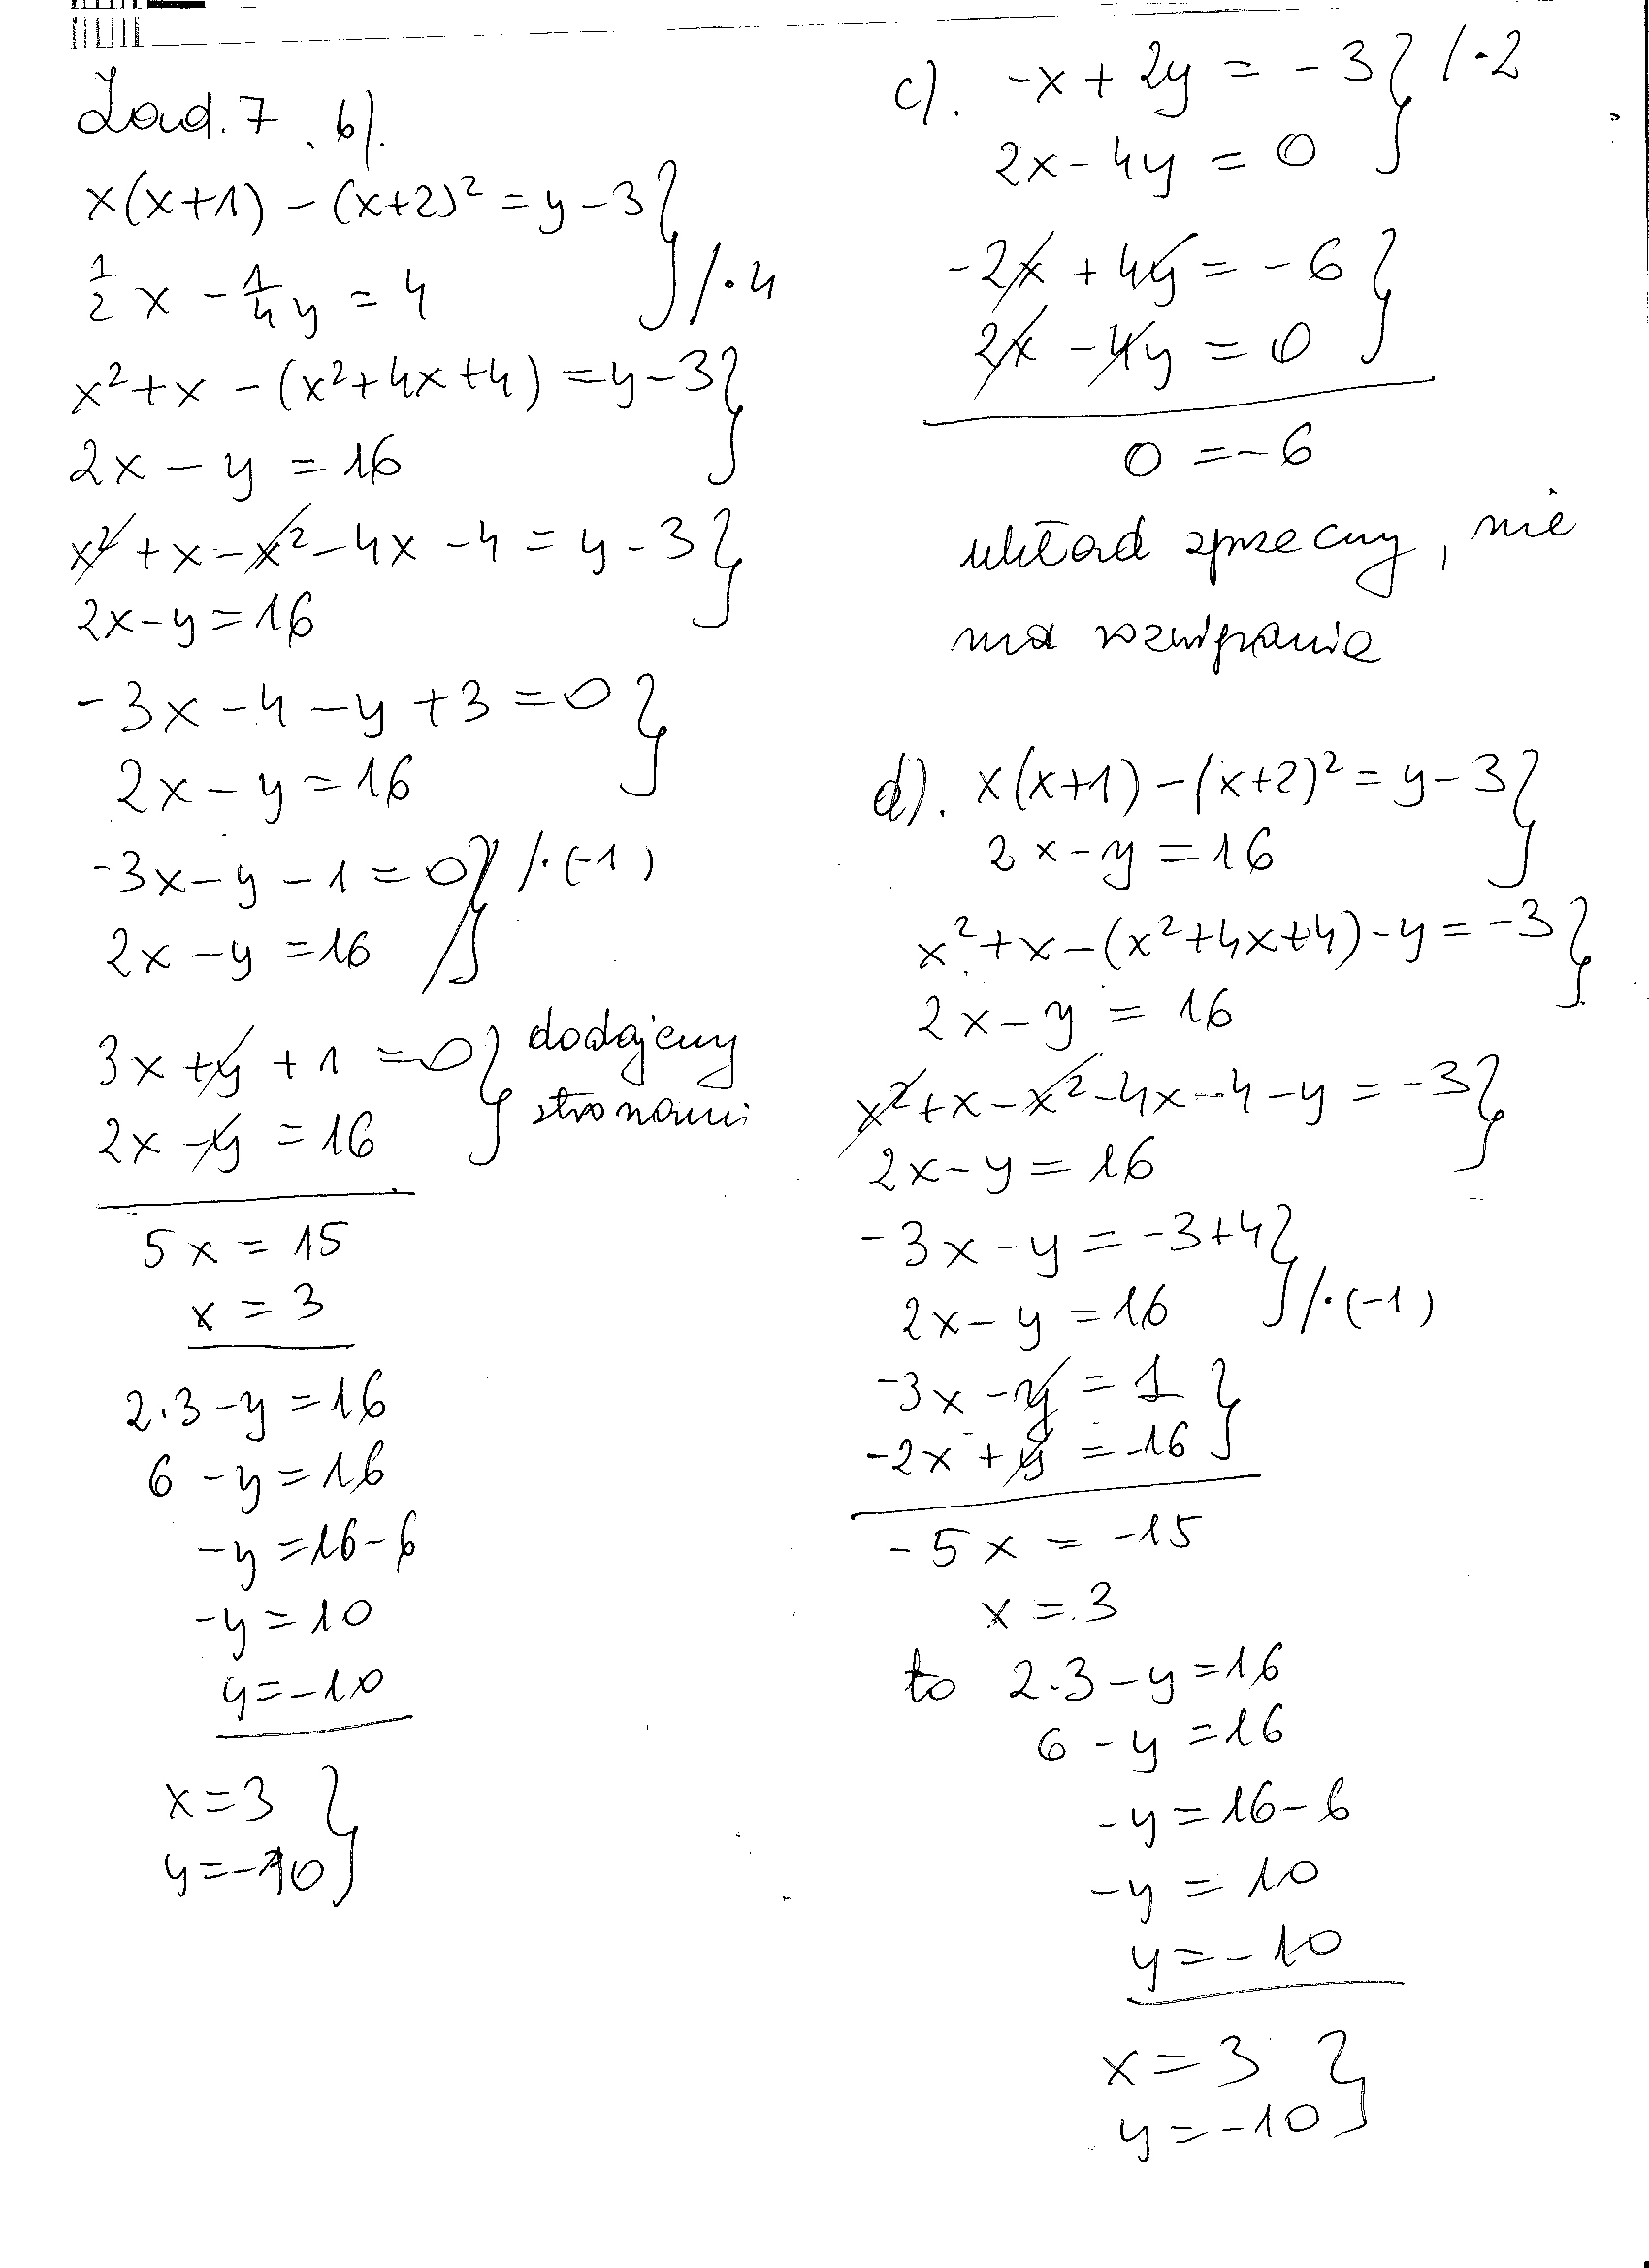 Zad. 7. b).
x(x+1) - (x+2)² = y - 3 }
½x - ¼y = 4 } /·4
x² + x - (x² + 4x + 4) = y - 3 }
2x - y = 16
x² + x - x² - 4x - 4 = y - 3 }
2x - y = 16
-3x - 4 - y + 3 = 0 }
2x - y = 16
-3x - y - 1 = 0 } /·(-1)
2x - y = 16
3x + y + 1 = 0 } dodajemy
2x - y = 16 } stronami
5x = 15
x = 3
2·3 - y = 16
6 - y = 16
-y = 16 - 6
-y = 10
y = -10
x = 3 }
y = -10
c). -x + 2y = -3 } /·2
2x - 4y = 0
-2x + 4y = -6 }
2x - 4y = 0
0 = -6
układ sprzeczny, nie
ma rozwiązania
d). x(x+1) - (x+2)² = y - 3 }
2x - y = 16
x² + x - (x² + 4x + 4) - y = -3 }
2x - y = 16
x² + x - x² - 4x - 4 - y = -3 }
2x - y = 16
-3x - y = -3 + 4 }
2x - y = 16 } /·(-1)
-3x - y = 1 }
-2x + y = -16
-5x = -15
x = 3
to 2·3 - y = 16
6 - y = 16
-y = 16 - 6
-y = 10
y = -10
x = 3 }
y = -10